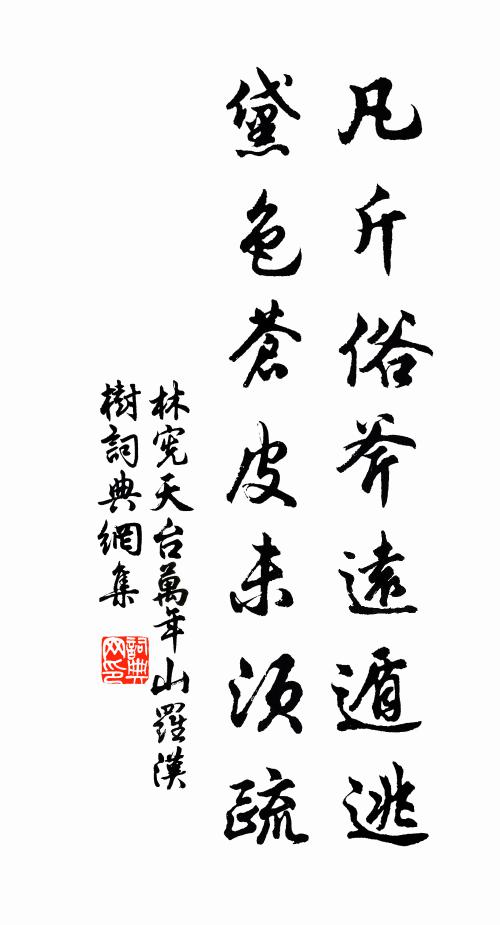 凡斤俗斧遠遁逃
黛色蒼皮未須疏
林宪天台萬年山羅漢
樹詞典網集
詞典网印